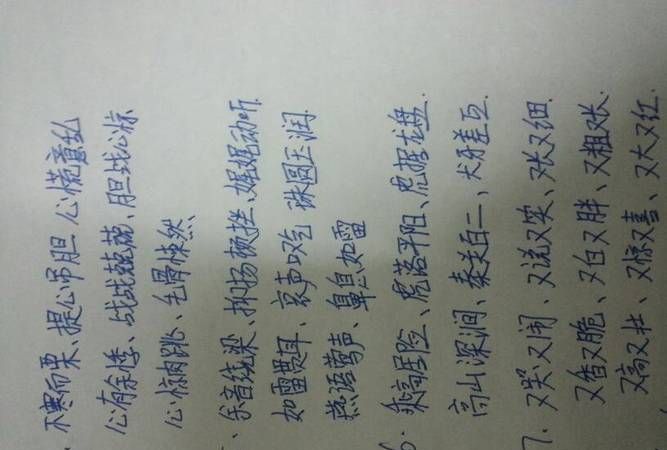 不寒而栗、提心吊胆 心慌意乱
心有余悸、战战兢兢、胆战心惊
心惊肉跳、毛骨悚然、
、余音绕梁、抑扬顿挫、娓娓动听
如雷贯耳、哀声叹气 珠圆玉润
燕语莺声、鼻息如雷
6. 乘高居险、虎落平阳、虎踞龙盘.
高山深涧、秦关百二、犬牙差互.
7. 又哭又闹、又说又笑、又长又细.
又香又脆、又白又胖、又粗又长.
又高又壮、又惊又喜、又大又红.